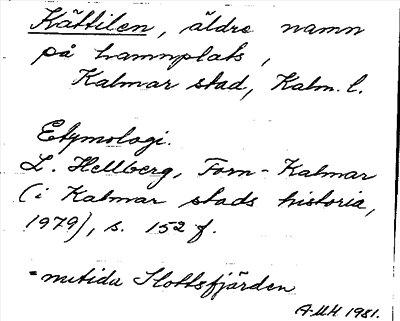 Kättilen, äldre namn
på hamnplats,
Kalmar stad, Kalm. l.
Etymologi.
L. Hellberg, Forn-Kalmar
(i Kalmar stads historia,
1979), s. 152 f.
= nutida Slottsfjärden
A.M.H. 1981.